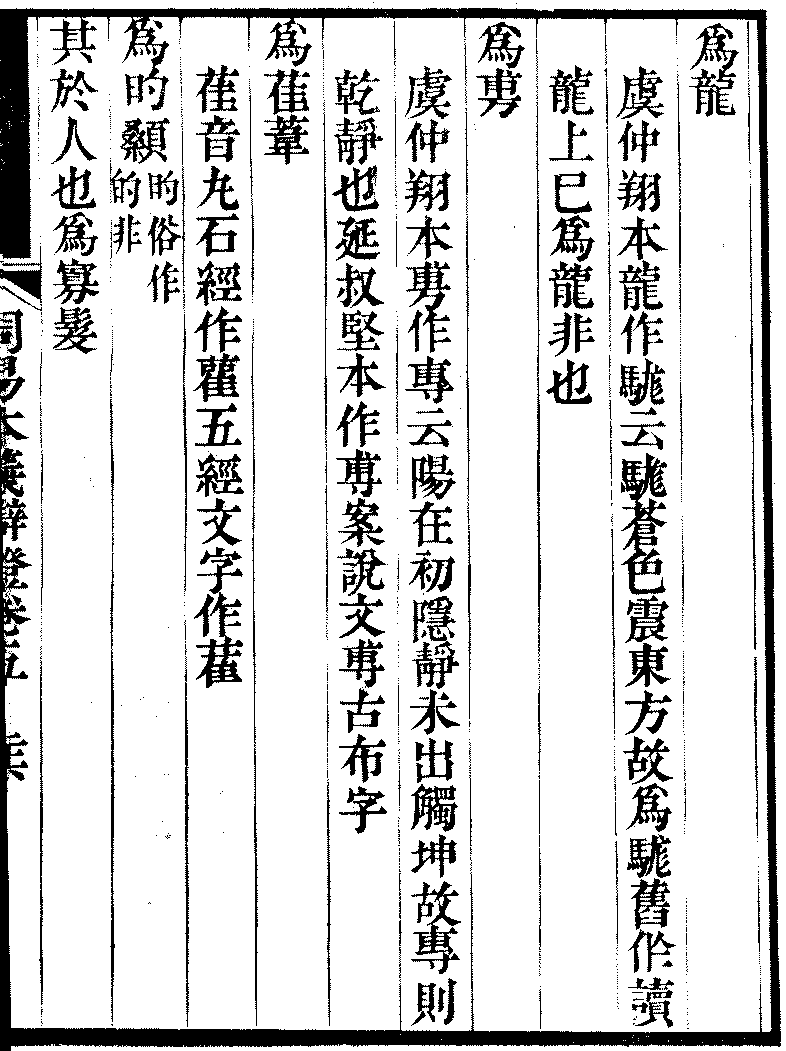 爲龍
虞仲翔本龍作駹云駹蒼色震東方故爲駹舊作讀
龍上已爲龍非也
爲旉
虞仲翔本旉作專云陽在初隱靜未出觸坤故專則
乾靜也延叔堅本作尃案說文尃古布字
爲萑葦
萑音丸石經作雚五經文字作萑
爲旳顙旳俗作的非
其於人也爲寡髮
周易本義辯證卷五